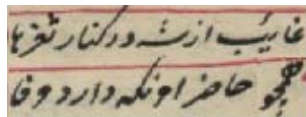 غایب از شه در کنار ثغرها
همچو حاضر او نگه دارد وفا